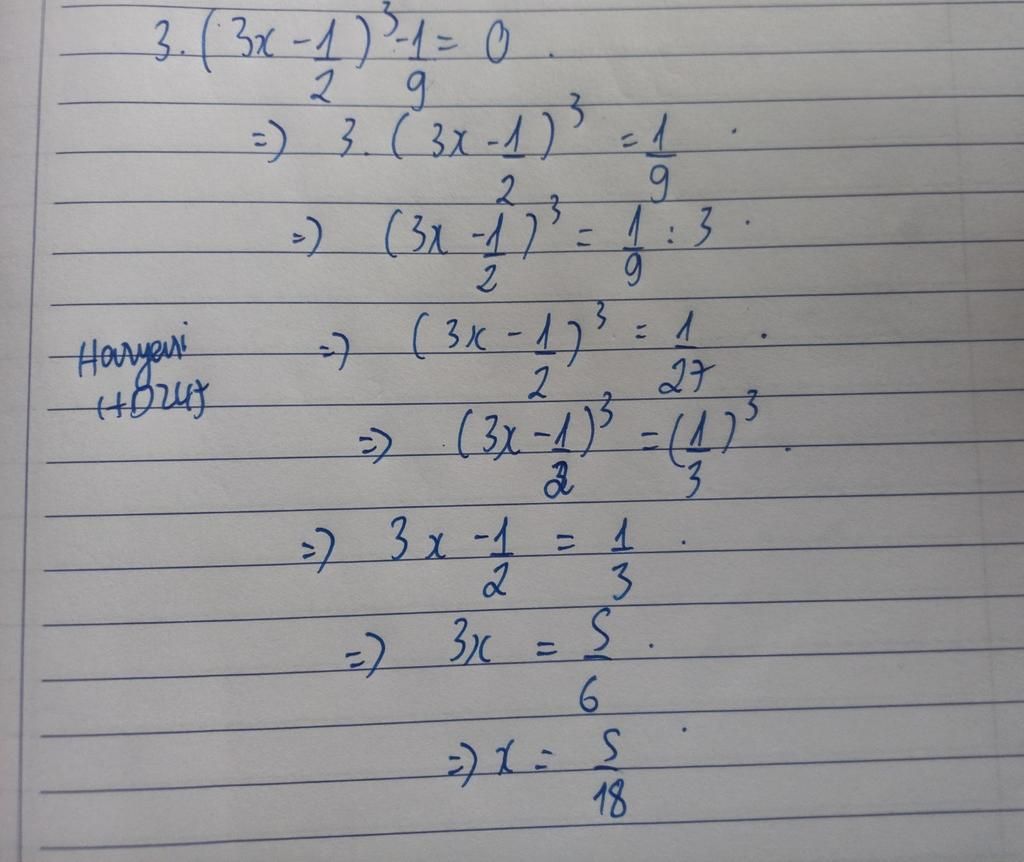 3.(3x - 1/2)³ - 1/9 = 0.
=) 3.(3x - 1/2)³ = 1/9.
=) (3x - 1/2)³ = 1/9 : 3.
=) (3x - 1/2)³ = 1/27.
=) (3x - 1/2)³ = (1/3)³.
=) 3x - 1/2 = 1/3.
=) 3x = 5/6.
=) x = 5/18